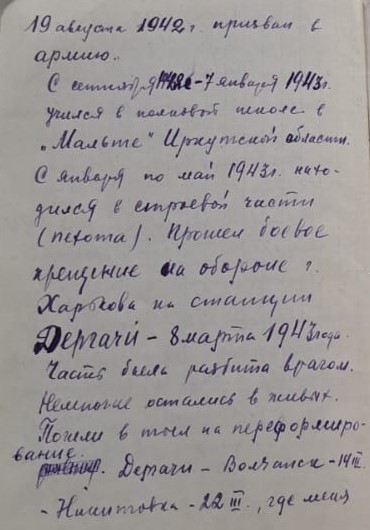 19 августа 1942 г. призван в
армию.
С сентября 1942 г - 7 января 1943 г.
учился в полковой школе в
„Мальте" Иркутской области.
С января по май 1943 г. нахо-
дился в строевой части
(пехота). Прошел боевое
крещение на обороне г.
Харькова на станции
Дергачи - 8 марта 1943 года.
Часть была разбита врагом.
Немногие остались в живых.
Пошли в тыл на переформиро-
вание.
Дергачи - Волчанск - 14 III.
- Никитовка - 22 III., где меня